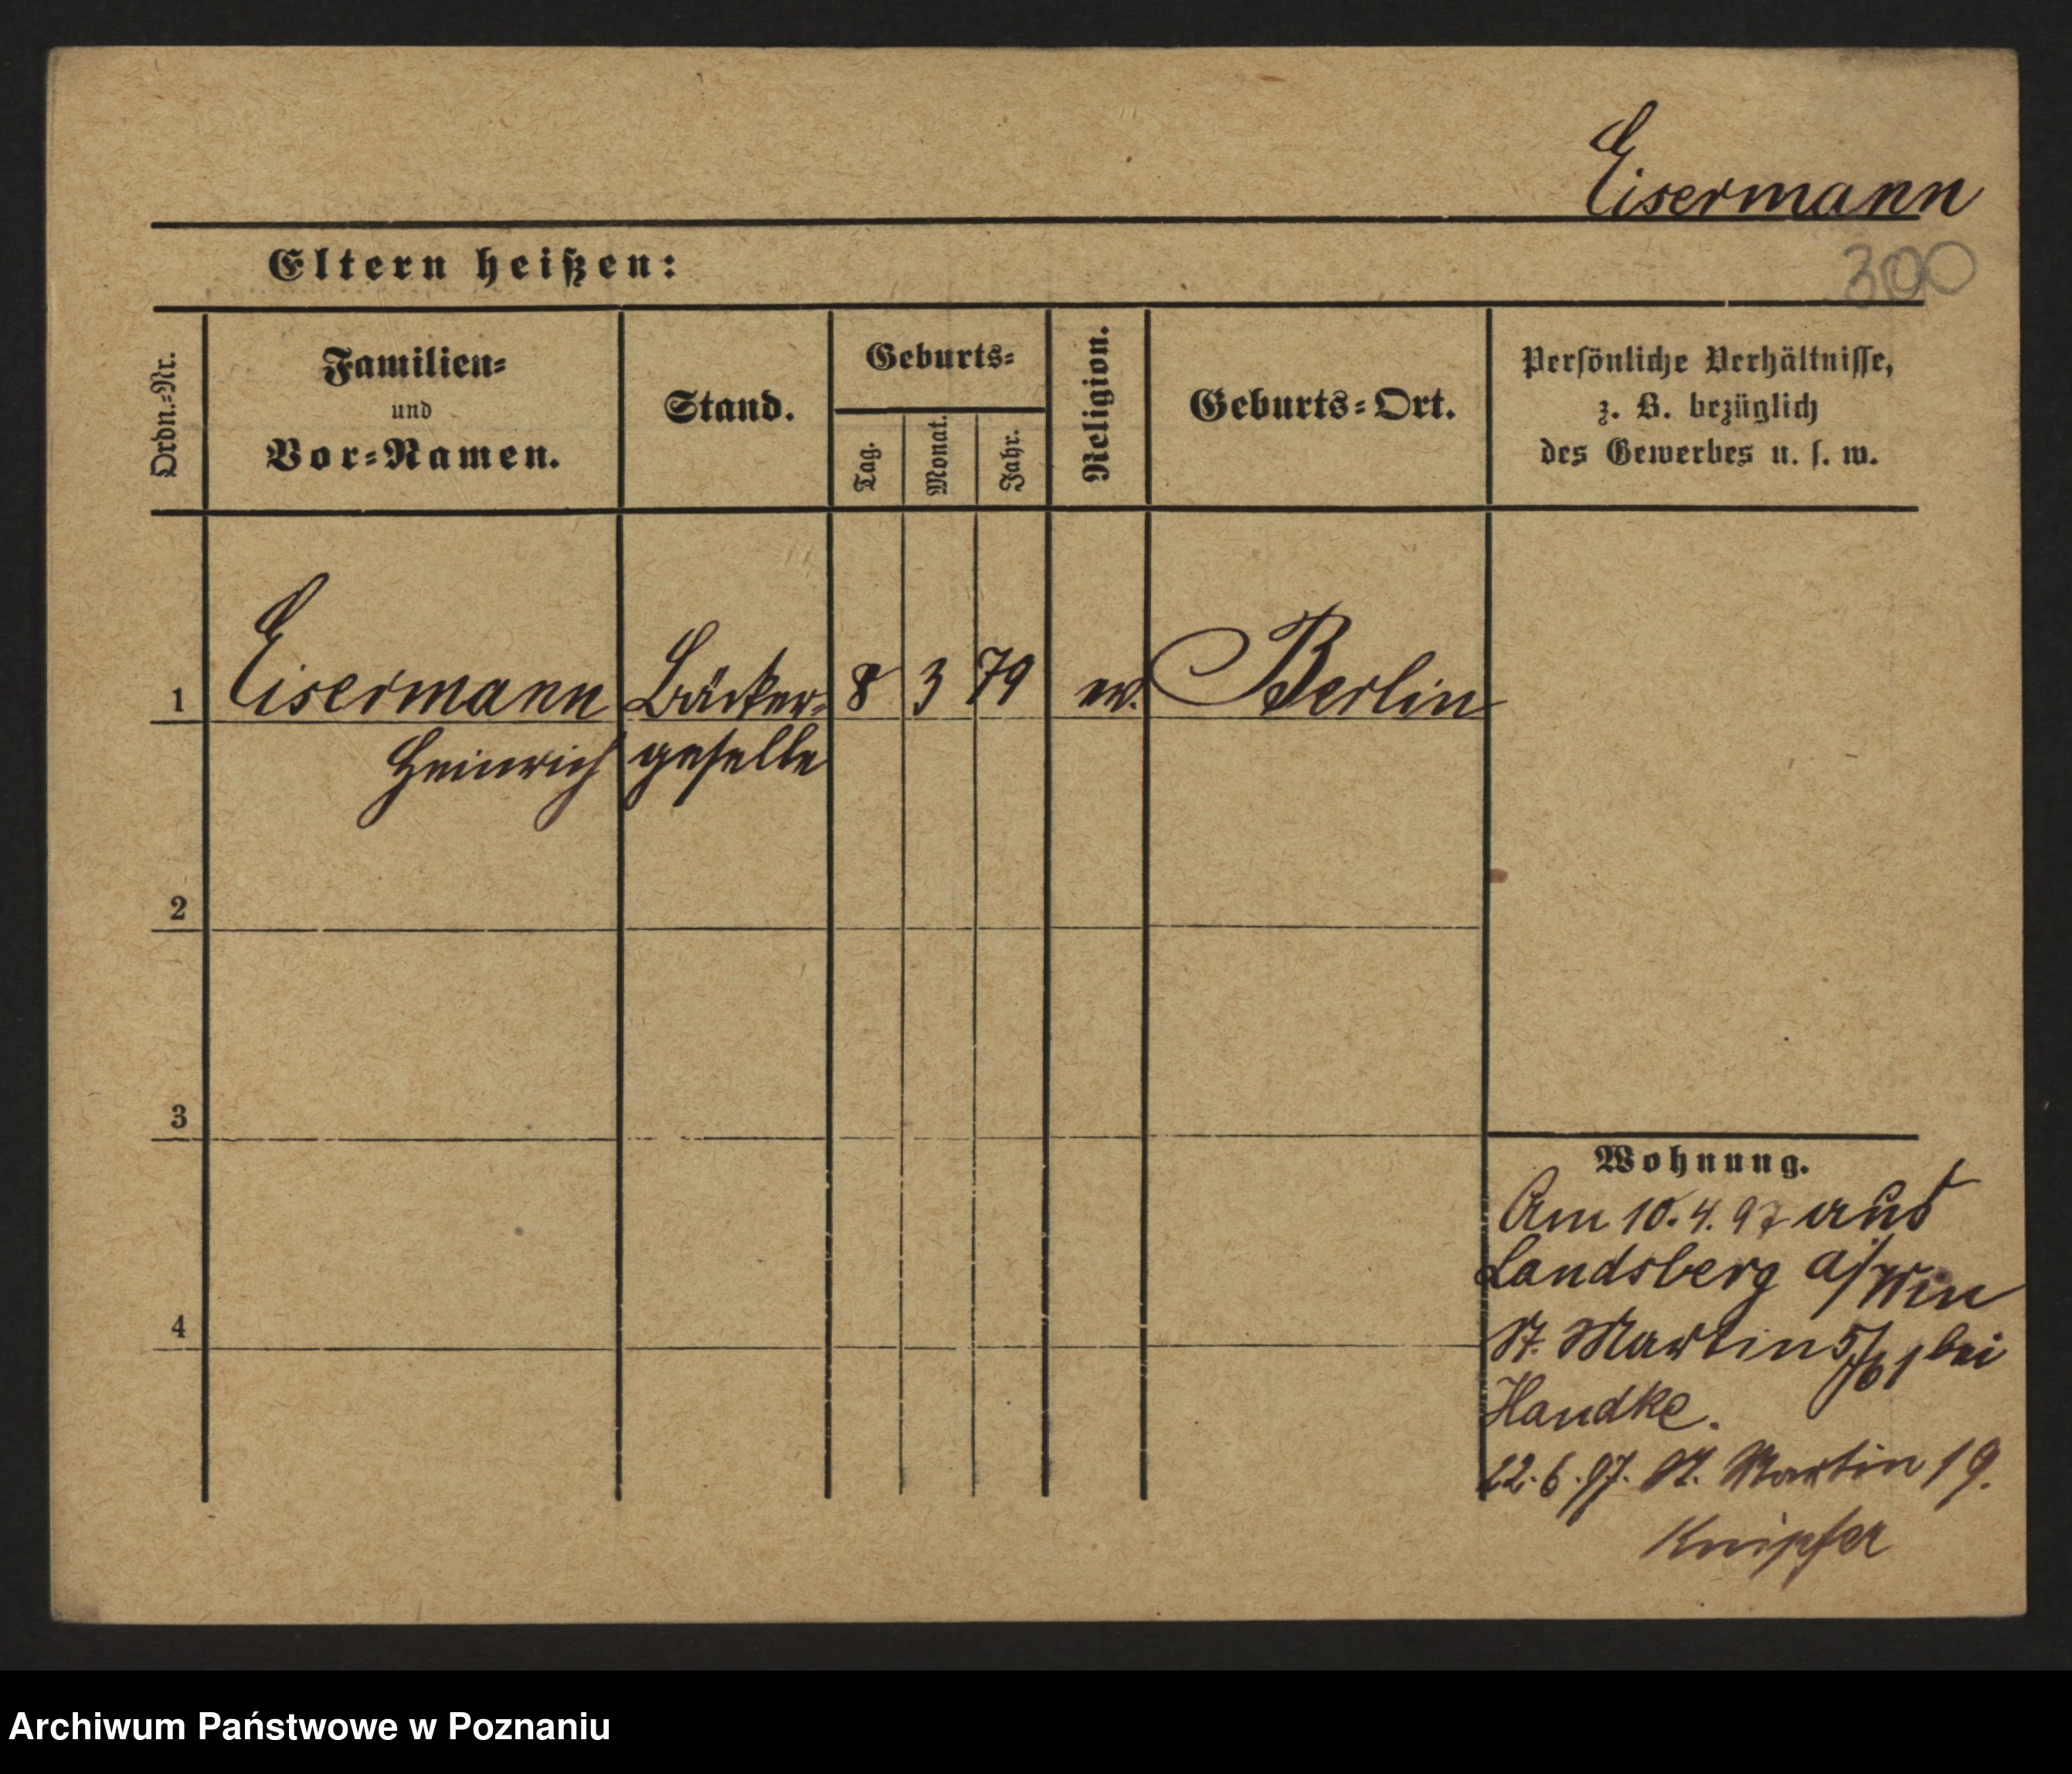 Eisermann
Eltern heißen:
300
Ordn.-Nr.
Familien-
und
Vor-Namen.
Stand.
Geburts-
Tag.
Monat.
Jahr.
Religion.
Geburts-Ort.
Persönliche Verhältnisse,
z. B. bezüglich
des Gewerbes u. s. w.
1 Eisermann Bäcker- 8 3 79 ev. Berlin
Heinrich geselle
2
3
4
Wohnung.
Am 10.4.97 aus
Landsberg a/
St. Martin 5/6 1 bei
Handke.
22.6.97. St. Martin 19.
Knipfer
Archiwum Państwowe w Poznaniu